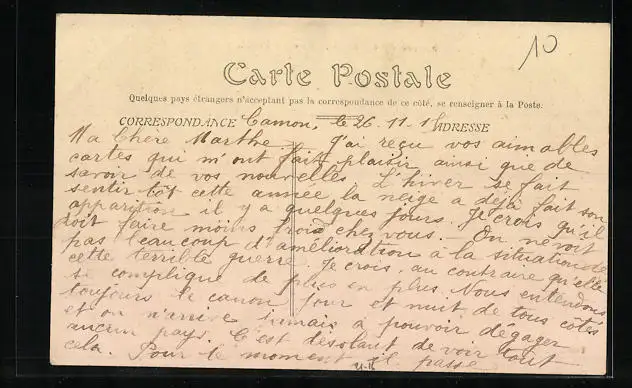 10
Carte Postale
Quelques pays étrangers n'acceptant pas la correspondance de ce côté, se renseigner à la Poste.
CORRESPONDANCE Camon, le 26-11-15 ADRESSE
Ma Chère Marthe. J'ai reçu vos aimables
cartes qui m'ont fait plaisir ainsi que de
savoir de vos nouvelles L'hiver se fait
sentir tôt cette année la neige a déjà fait son
apparition il y a quelques jours. Je crois qu'il
doit faire moins froid chez vous. - On ne voit
pas beaucoup d'amélioration à la situation de
cette terrible guerre. Je crois, au contraire qu'elle
se complique de plus en plus. Nous entendons
toujours le canon jour et nuit, de tous côtés
et on n'arrive jamais à pouvoir dégager
aucun pays. C'est désolant de voir tout
cela. Pour le moment il passe